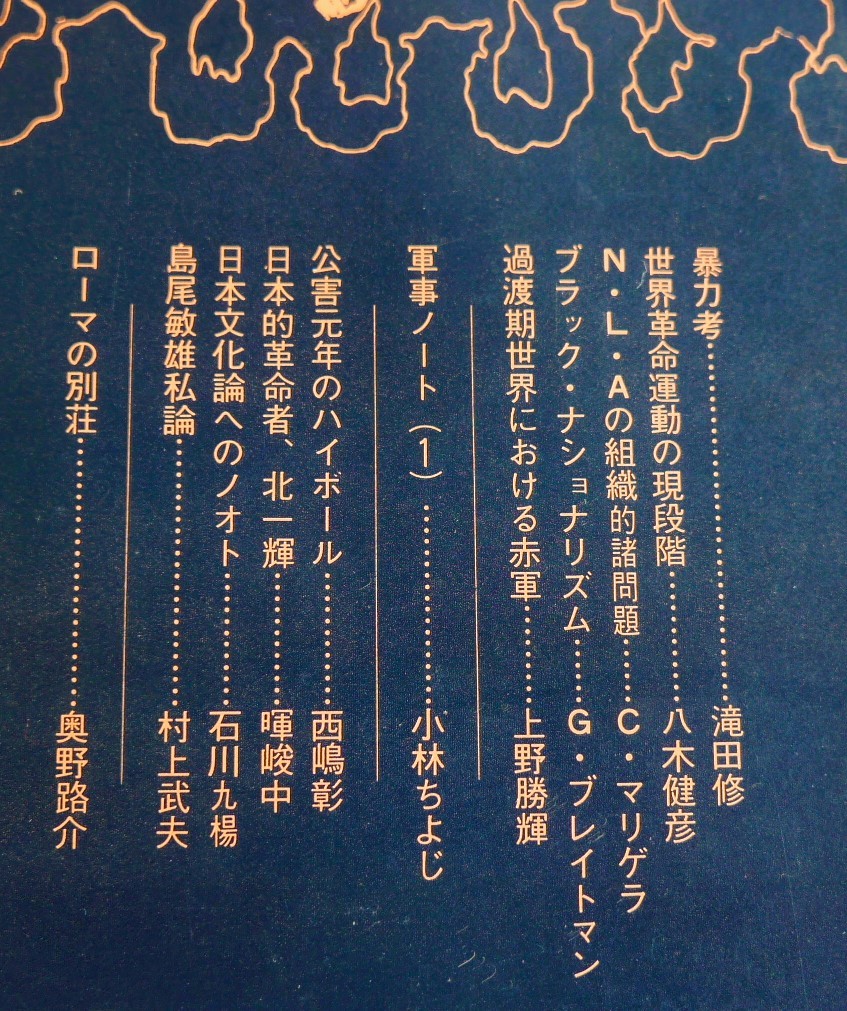 暴力考……………………滝田修
世界革命運動の現段階…………八木健彦
N・L・Aの組織的諸問題……C・マリゲラ
ブラック・ナショナリズム……G・ブレイトマン
過渡期世界における赤軍………上野勝輝
軍事ノート（1）………………小林ちよじ
公害元年のハイボール…………西嶋彰
日本的革命者、北一輝…………暉峻中
日本文化論へのノオト…………石川九楊
島尾敏雄私論……………………村上武夫
ローマの別荘……………………奥野路介